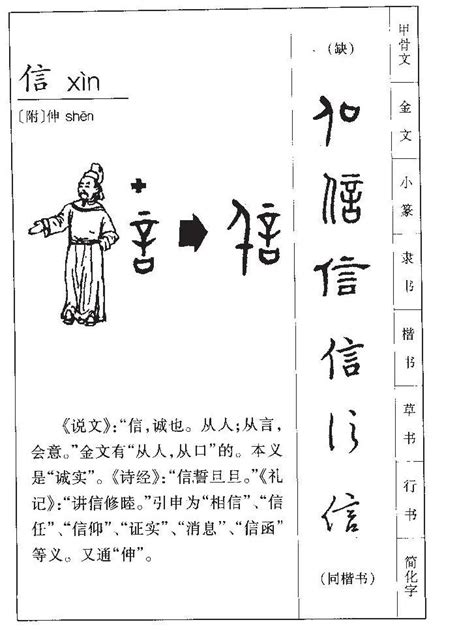 信 xìn
〔附〕伸 shēn
+
言
信
《说文》：“信，诚也。从人；从言，
会意。”金文有“从人，从口”的。本义
是“诚实”。《诗经》：“信誓旦旦。”《礼
记》：“讲信修睦。”引申为“相信”、“信
任”、“信仰”、“证实”、“消息”、“信函”
等义。又通“伸”。
（缺）
信
信
信
信
信
信
（同楷书）
甲骨文
金文
小篆
隶书
楷书
草书
行书
简化字